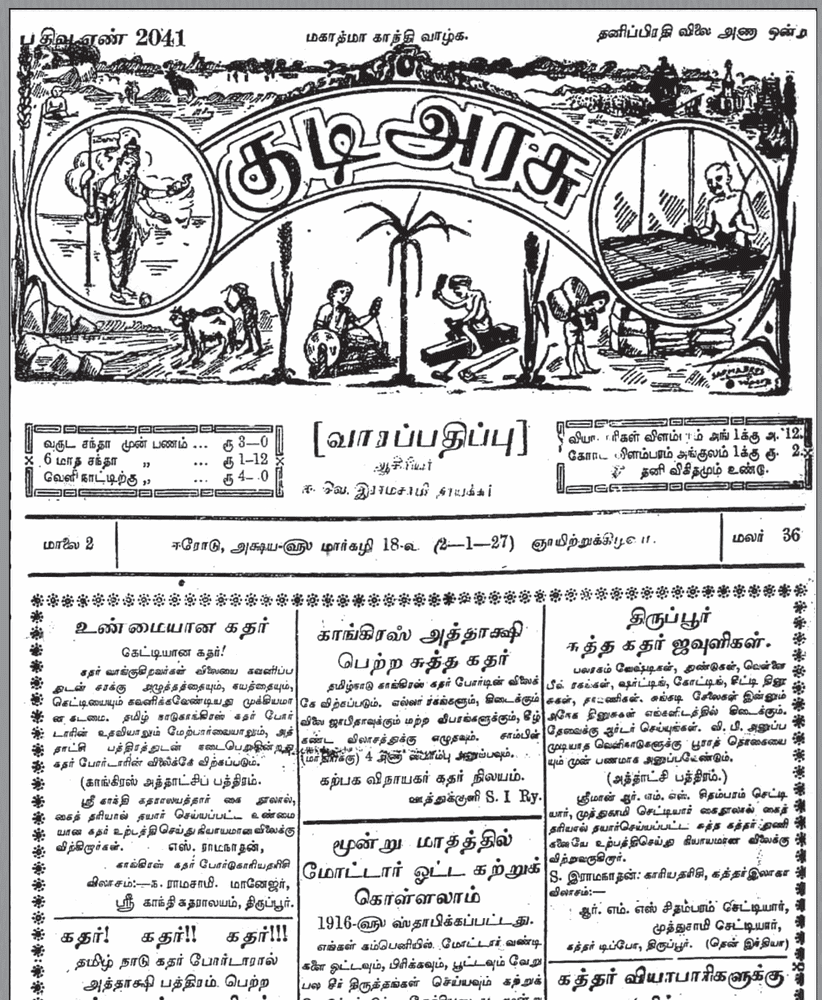 பதிவு எண் 2041
மகாத்மா காந்தி வாழ்க.
தனிப்பிரதி விலை அணா ஒன்று
குடி அரசு
வருட சந்தா முன் பணம் ... ரூ 3—0
6 மாத சந்தா „ ... ரூ 1—12
வெளிநாட்டிற்கு „ ... ரூ 4—0
[வாரப்பதிப்பு]
ஆசிரியர்
ஈ. வெ. இராமசாமி நாயக்கர்
வியாபாரிகள் விளம்பரம் அங் 1க்கு அ. 12.
விளம்பரம் அங்குலம் 1க்கு ரூ. 2.
தனி விகிதமும் உண்டு.
மாலை 2
ஈரோடு, அக்ஷய-௵ மார்கழி 18-உ (2—1—27) ஞாயிற்றுக்கிழமை.
மலர் 36
உண்மையான கதர்
கெட்டியான கதர்!
கதர் வாங்குகிறவர்கள் விலையை கவனிப்ப
துடன் சரக்கு அழுத்தத்தையும், சுயத்தையும்,
கெட்டியையும் கவனிக்கவேண்டியது முக்கியமா
ன கடமை. தமிழ் நாடுகாங்கிரஸ் கதர் போர்
டாரின் உதவியாலும் மேற்பார்வையாலும், அத்
தாட்சி பத்திரத்துடன் நடைபெறுகின்றது
கதர் போர்டாரின் விலைக்கே விற்கப்படும்.
(காங்கிரஸ் அத்தாட்சிப் பத்திரம்.)
ஸ்ரீ காந்தி கதராலயத்தார் கை நூலால்,
கைத் தறியால் தயார் செய்யப்பட்ட உண்மை
யான கதர் உற்பத்திசெய்து கியாயமானவிலைக்கு
விற்கிறார்கள். எஸ். ராமநாதன்,
காங்கிரஸ் கதர் போர்டுகாரியதரிசி
விலாசம்:—ந. ராமசாமி. மானேஜர்,
ஸ்ரீ காந்தி கதராலயம், திருப்பூர்.
கதர்! கதர்!! கதர்!!!
தமிழ் நாடு கதர் போர்டாரால்
அத்தாக்ஷி பத்திரம் பெற்ற
காங்கிரஸ் அத்தாக்ஷி
பெற்ற சுத்த கதர்
தமிழ்நாடு காங்கிரஸ் கதர் போர்டின் விலைக்
கே விற்கப்படும். எல்லா ரகங்களும், கிடைக்கும்
விலை ஜாபிதாவுக்கும் மற்ற விபரங்களுக்கும், கீழ்
கண்ட விலாசத்துக்கு எழுதவும். சாம்பிள்
(மாதிரிக்கு) 4 அணா ஸ்டாம்பு அனுப்பவும்.
கற்பக விநாயகர் கதர் நிலயம்.
ஊத்துக்குளி S. I Ry.
மூன்று மாதத்தில்
மோட்டார் ஓட்ட கற்றுக்
கொள்ளலாம்
1916-௵ ஸ்தாபிக்கப்பட்டது.
எங்கள் கம்பெனியில் மோட்டார் வண்டி
களை ஓட்டவும், பிரிக்கவும், பூட்டவும் வேறு
பல சிர் திருத்தங்கள் செய்யவும் கற்றுக்
திருப்பூர்
சுத்த கதர் ஜவுளிகள்.
பலரகம் வேஷ்டிகள், துண்டுகள், வெள்ளை
பீஸ் ரகங்கள், ஷர்ட்டிங், கோட்டிங், சீட்டி தினு
சுகள், தாவணிகள். சுங்கடி சேலைகள் இன்னும்
அநேக தினுசுகள் எங்களிடத்தில் கிடைக்கும்.
தேவைக்கு ஆர்டர் செய்யுங்கள். வி. பி. அனுப்ப
முடியாத வெளிநாடுகளுக்கு பூராத் தொகையை
யும் முன் பணமாக அனுப்பவேண்டும்.
(அத்தாட்சி பத்திரம்.)
ஸ்ரீமான் ஆர். எம். எஸ். சிதம்பரம் செட்டி
யார், முத்துசாமி செட்டியார் கைநூலால் கைத்
தறியால் தயார்செய்யப்பட்ட சுத்த கத்தர் துணி
களையே உற்பத்திசெய்து கியாயமான விலைக்கு
விற்றுவருகிறார்.
S. இராமநாதன்: காரியதரிசி, கத்தர்இலாகா
விலாசம்:—
ஆர். எம். எஸ் சிதம்பரம் செட்டியார்,
முத்துசாமி செட்டியார்,
கத்தர் டிப்போ, திருப்பூர். (தென் இந்தியா)
கத்தர் வியாபாரிகளுக்கு